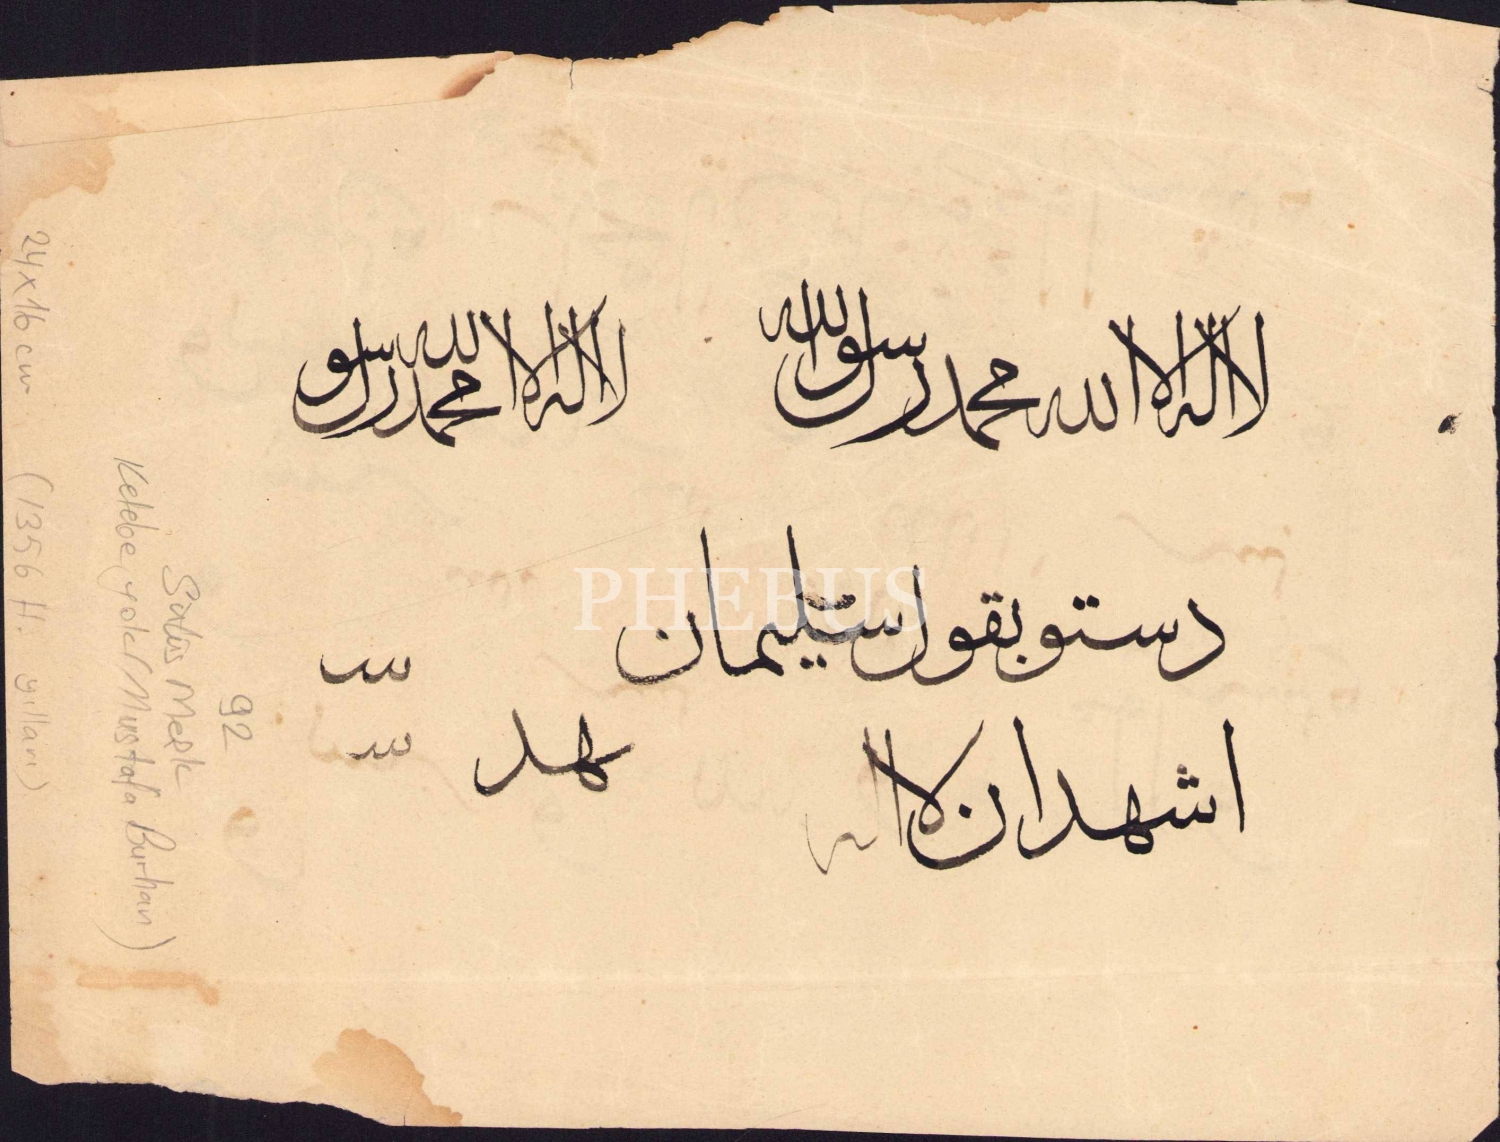 لا اله الا الله محمد رسول الله
لا اله الا الله محمد رسو
دستو بقول سليمان
اشهد ان لا اله
هد
PHEBUS
24x16 cm (1356 H. yılları)
Ketebe yok (Mustafa Burhan)
Sülüs Meşk
92